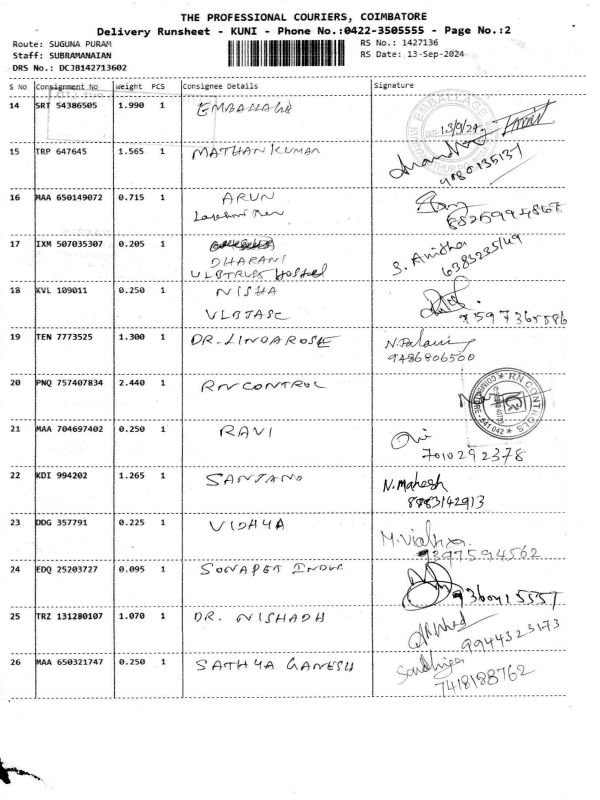 THE PROFESSIONAL COURIERS, COIMBATORE
Delivery Runsheet - KUNI - Phone No.:0422-3505555 - Page No.:2
Route: SUGUNA PURAM RS No.: 1427136
Staff: SUBRAMANAIAN RS Date: 13-Sep-2024
DRS No.: DCJB142713602
S No Consignment No Weight PCS Consignee Details Signature
14 SRT 54386505 1.990 1 EMBALLAGE
DATE: 13/9/24
15 TRP 647645 1.565 1 MATHAN KUMAR
9080135137
16 MAA 650149072 0.715 1 ARUN
17 IXM 507035307 0.205 1
DHARANI S. Anitha
VLBTRUST Hostel 6383235149
18 KVL 109011 0.250 1 NISHA
VLBJASC
19 TEN 7773525 1.300 1 DR. LINDAROSE
9486806500
20 PNQ 757407834 2.440 1 RN CONTROL
RN CONTROLS ★ COIMBATORE - 641 042 ★
21 MAA 704697402 0.250 1 RAVI
7010292378
22 KDI 994202 1.265 1 SANTANO N. Mahesh
8883142913
23 DDG 357791 0.225 1 VIDHYA M. Vidhya
9397594562
24 EDQ 25203727 0.095 1 SONAPET INDUS
25 TRZ 131280107 1.070 1 DR. NISHADH
9944323173
26 MAA 650321747 0.250 1 SATHYA GANESH
7418188762